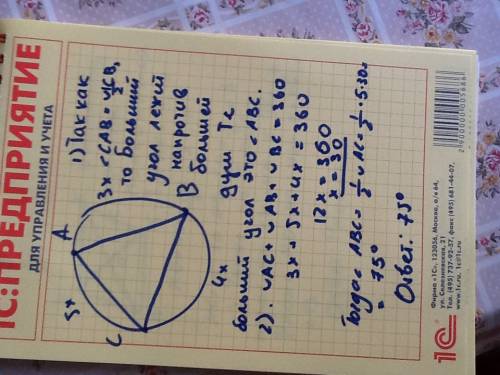 1С:ПРЕДПРИЯТИЕ
ДЛЯ УПРАВЛЕНИЯ И УЧЕТА
A
B
C
3x
5x
4x
1) Так как
<CAB = ½ ◡CB,
то больший
угол лежит
напротив
большей
дуги Те
больший угол это <ABC.
2). ◡AC + ◡AB + ◡BC = 360
3x + 5x + 4x = 360
12x = 360
x = 30
Тогда < ABC = ½ ◡AC = ½ · 5·30=
= 75°
Ответ: 75°
1С
Фирма «1С», 123056, Москва, а/я 64,
ул. Селезневская, 21
Тел. (495) 737-92-57, факс (495) 681-44-07,
www.1c.ru, 1c@1c.ru